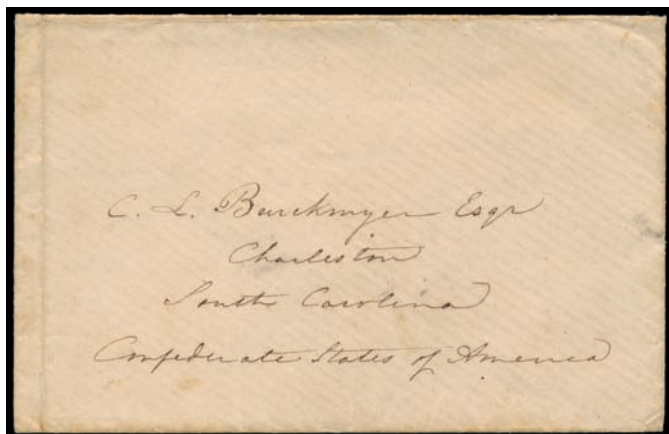 C. L. Burckmyer Esqr
Charleston
South Carolina
Confederate States of America